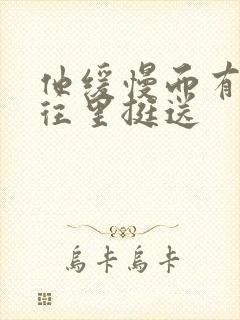 他缓慢而有
往里挺送
乌卡乌卡